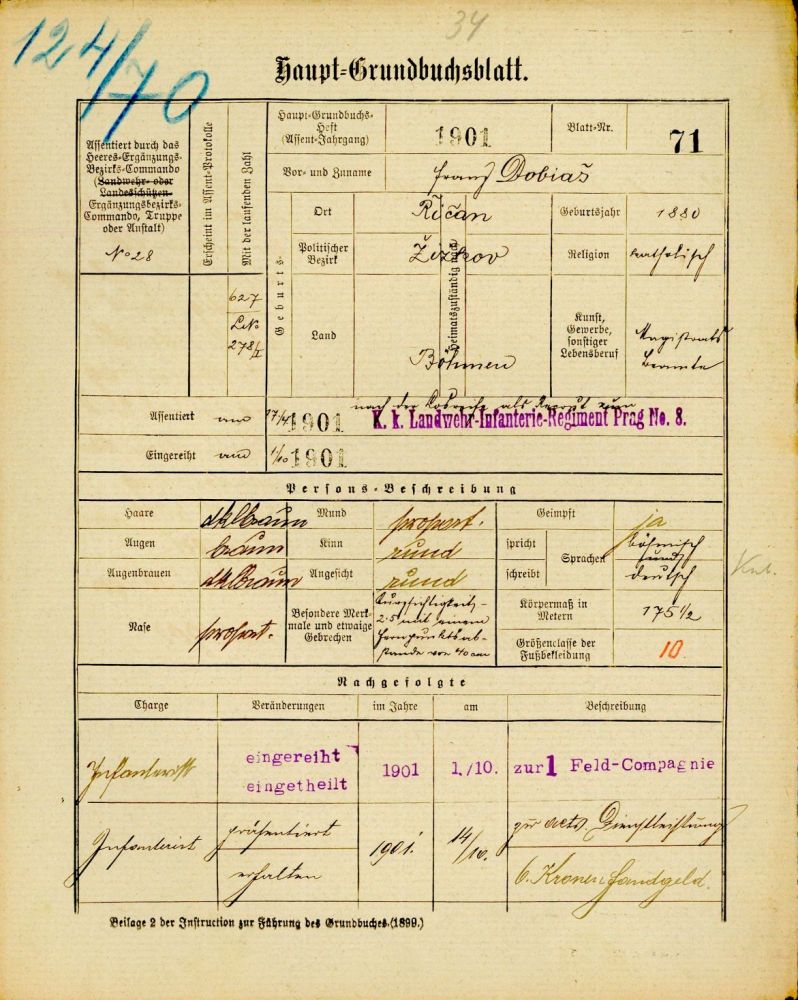 34
124/70
Haupt=Grundbuchsblatt.
Assentiert durch das
Heeres=Ergänzungs=
Bezirks=Commando
(Landwehr= oder
Landesschützen=
Ergänzungsbezirks=
Commando, Truppe
oder Anstalt)
No 28
Erscheint im Assent=Protokolle
Mit der laufenden Zahl
627
278/I
Haupt=Grundbuchs=
Heft
(Assent=Jahrgang)
1901
Blatt=Nr.
71
Vor= und Zuname
Franz Dobiaš
Geburts=
Ort
Řičan
Heimatszuständig nach
Geburtsjahr
1880
Politischer
Bezirk
Žižkov
Religion
katholisch
Land
Böhmen
Kunst,
Gewerbe,
sonstiger
Lebensberuf
Magistrats
Beamte
Assentiert am 17/4 1901
nach der Losreihe als Rekrut zum
K. k. Landwehr-Infanterie-Regiment Prag No. 8.
Eingereiht am 1/10 1901
Persons=Beschreibung
Haare dklbraun
Mund proport.
Geimpft ja
Augen braun
Kinn rund
spricht
schreibt
Sprachen
böhmisch
und
deutsch
Knl.
Augenbrauen dklbraun
Angesicht rund
Nase proport.
Besondere Merk=
male und etwaige
Gebrechen
Kurzsichtigkeit
2·5 mit einem
Fernpunktsab=
stande von 40 cm
Körpermaß in
Metern
175 1/2
Größenclasse der
Fußbekleidung
10
Nachgefolgte
Charge
Veränderungen
im Jahre
am
Beschreibung
Infanterist
eingereiht
eingetheilt
1901
1./10.
zur 1 Feld-Compagnie
Infanterist
präsentiert
1901.
14/10.
zur activ. Dienstleistung
erhalten
6. Kronen Handgeld.
Beilage 2 der Instruction zur Führung des Grundbuches. (1899.)